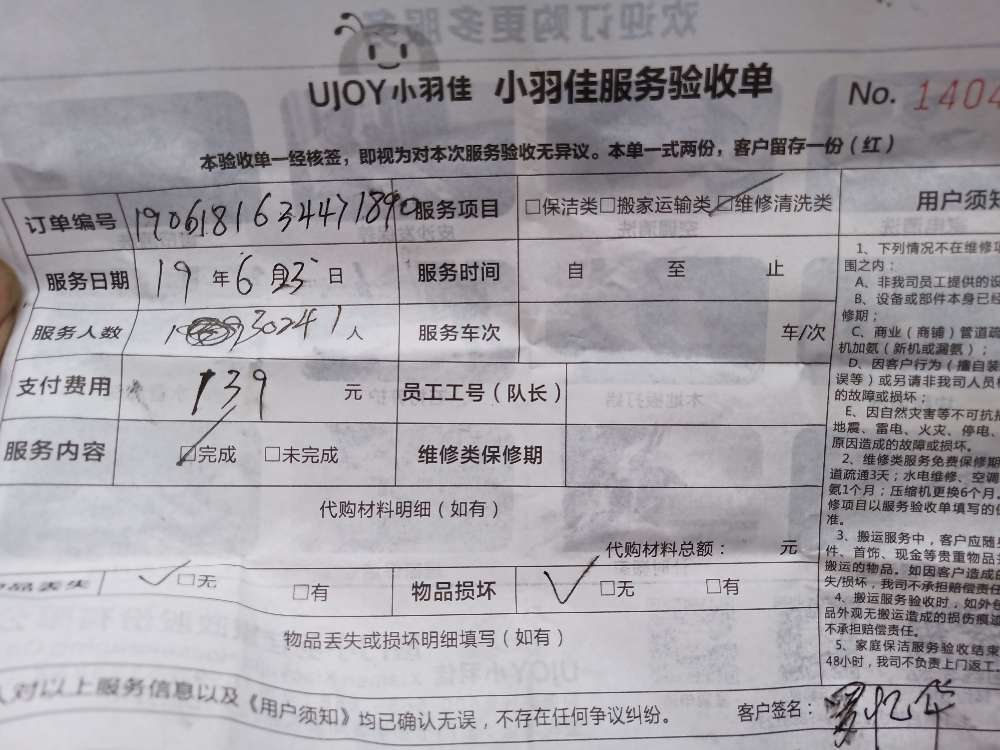 UJOY小羽佳 小羽佳服务验收单 No. 1404
本验收单一经核签，即视为对本次服务验收无异议。本单一式两份，客户留存一份（红）
订单编号 1906181634471890 服务项目 □保洁类□搬家运输类☑维修清洗类
服务日期 19 年 6 月 日 服务时间 自 至 止
服务人数 人 服务车次 车/次
支付费用 139 元 员工工号（队长）
服务内容 ☑完成 □未完成 维修类保修期
代购材料明细（如有）
代购材料总额： 元
品丢失 ✓□无 □有 物品损坏 ✓□无 □有
物品丢失或损坏明细填写（如有）
人对以上服务信息以及《用户须知》均已确认无误，不存在任何争议纠纷。 客户签名：
用户须知
1、下列情况不在维修项
围之内：
A、非我司员工提供的设
B、设备或部件本身已经
修期；
C、商业（商铺）管道疏
机加氨（新机或漏氨）；
D、因客户行为（擅自装
误等）或另请非我司人员
的故障或损坏；
E、因自然灾害等不可抗
地震、雷电、火灾、停电、
原因造成的故障或损坏。
2、维修类服务免费保修期
道疏通3天；水电维修、空调
氨1个月；压缩机更换6个月，
修项目以服务验收单填写的
准。
3、搬运服务中，客户应随
件、首饰、现金等贵重物品
搬运的物品。如因客户造成
失/损坏，我司不承担赔偿责任
4、搬运服务验收时，如外
品外观无搬运造成的损伤痕
不承担赔偿责任。
5、家庭保洁服务验收结束
48小时，我司不负责上门返工